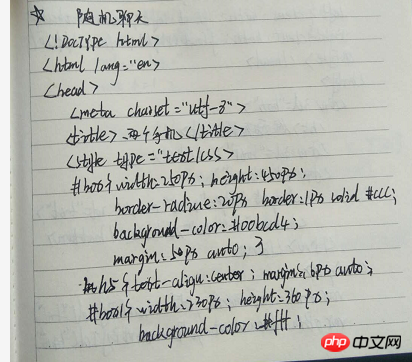 ☆ 随机聊天
<!DocType html>
<html lang="en>
<head>
<meta charset="utf-8">
<title>两个手机</title>
<style type="text/css>
#box{width:250px; height:450px;
border-radius:20px border:1px solid #ccc;
background-color:#00bcd4;
margin:50px auto; }
h5{text-align:center; margin:6px auto;
#box1{width:230px; height:360px;
background-color:#fff;
php 中文网